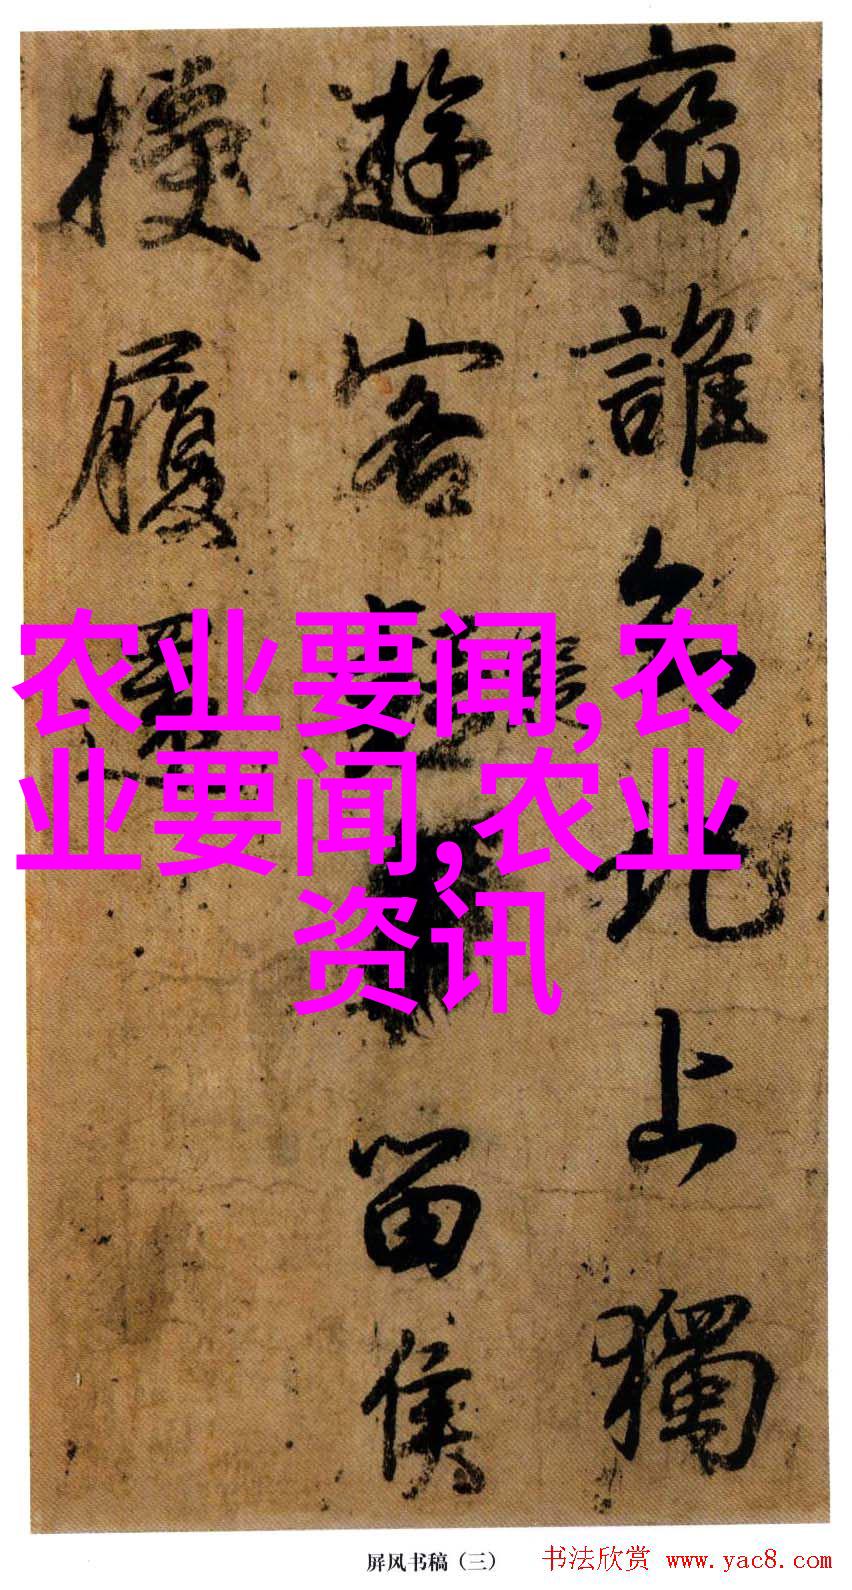 峦誰為此上獨
遊客
留侯
授履還
农业要闻,农
业要闻,农业
资讯
屏风书稿(三)
书法欣赏 www.yac8.com